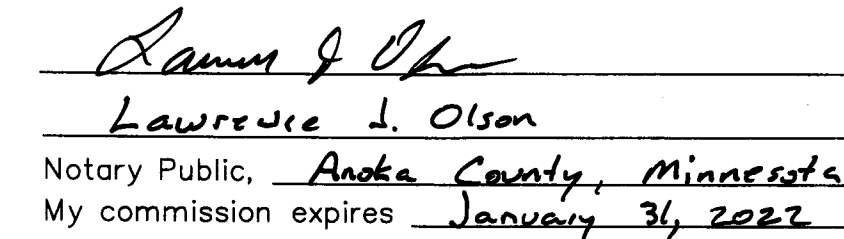 Lawrence J. Olson
Notary Public, Anoka County, Minnesota
My commission expires January 31, 2022